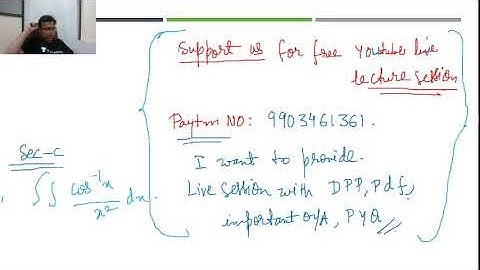 Support us for free Youtube live
lecture session
Paytm NO: 9903461361.
I want to provide.
Live session with DPP, Pdf,
important Q/A, PYQ
Sec-C
∫∫ cos⁻¹x / x² dx.